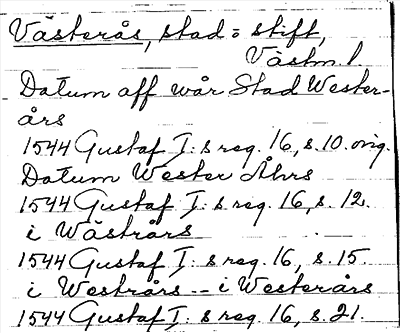 Västerås, stad o stift,
Västm l
Datum aff wår Stad Wester-
års
1544 Gustaf I:s reg. 16, s. 10. orig.
Datum Wester Åhrs
1544 Gustaf I:s reg. 16, s. 12.
i Wästrårs
1544 Gustaf I:s reg. 16, s. 15.
i Westrårs -- i Westerårs
1544 Gustaf I:s reg. 16, s. 21.